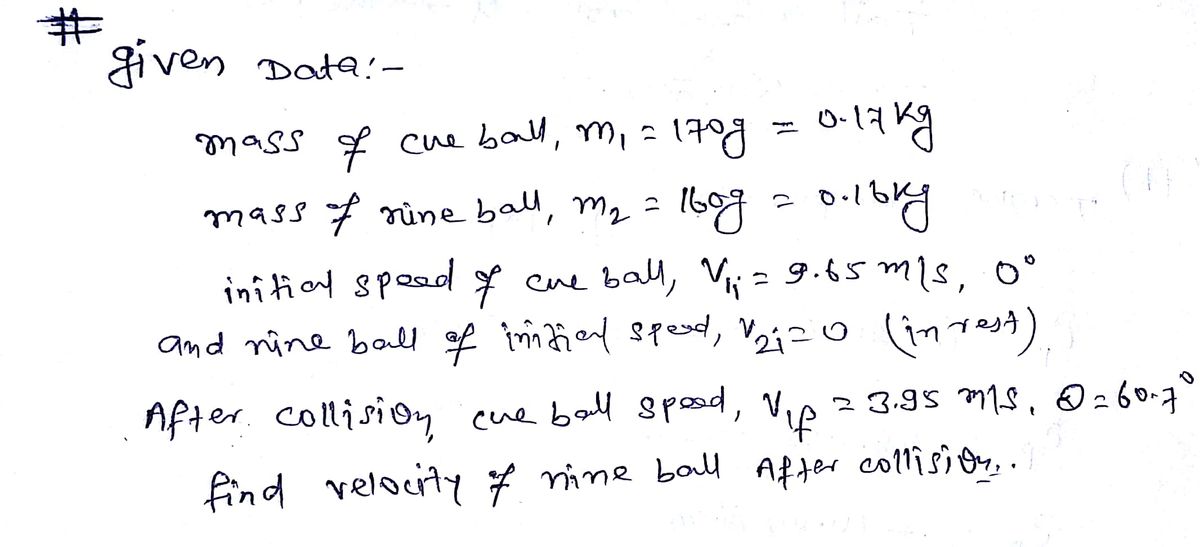 #
given Data:-
mass of cue ball, m₁ = 170g = 0.17 kg
mass of nine ball, m₂ = 160g = 0.16kg
initial speed of cue ball, V₁ᵢ = 9.65 m/s, 0°
and nine ball of initial speed, V₂ᵢ = 0 (in rest)
After collision, cue ball speed, V₁f = 3.95 m/s, θ = 60.7°
find velocity of nine ball After collision.